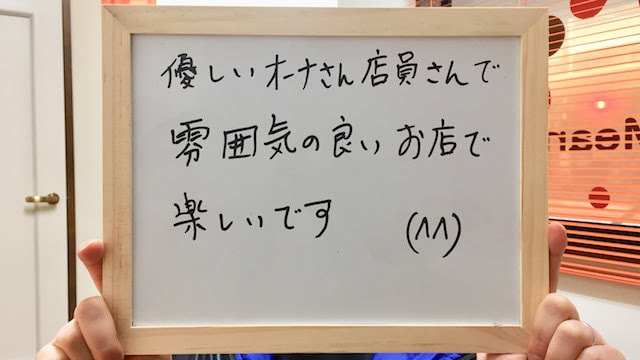 優しいオーナさん店員さんで
雰囲気の良いお店で
楽しいです (^^)
Mean